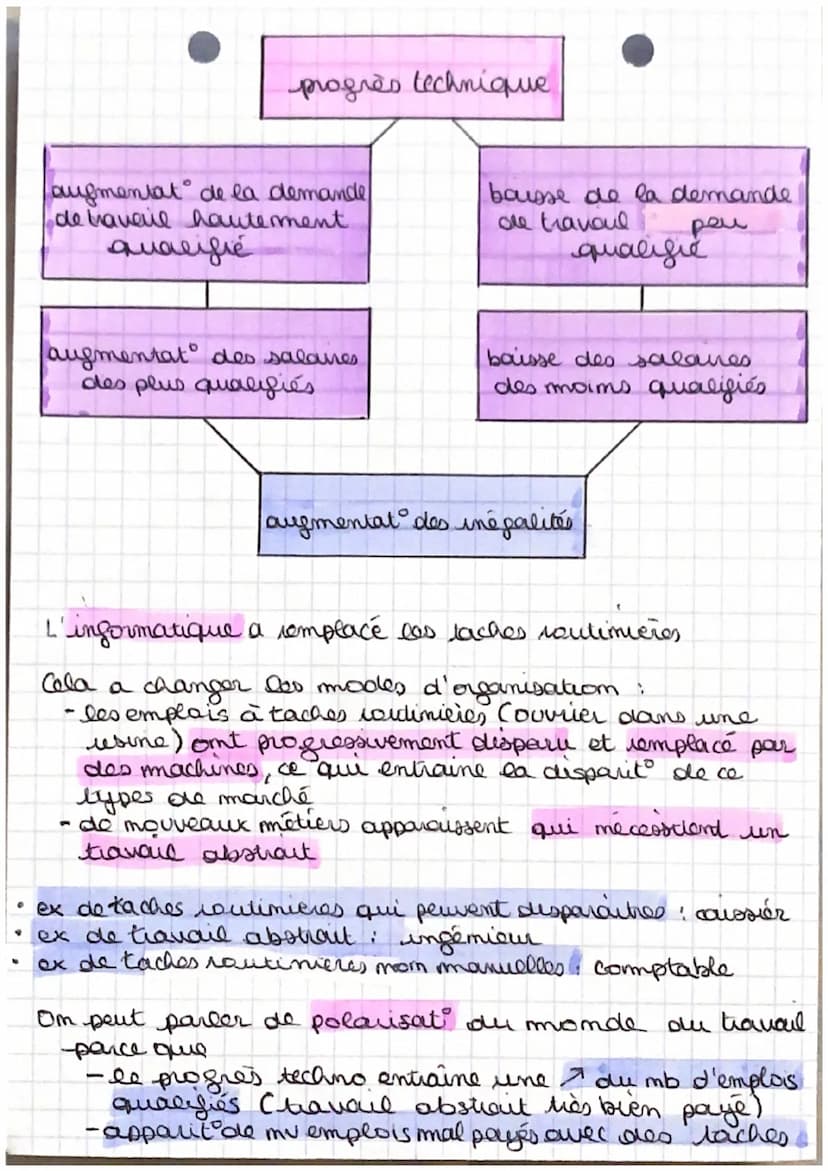 progrès technique
augmentat° de la demande
de travail hautement
qualifié
baisse de la demande
de travail peu
qualifié
augmentat° des salaires
des plus qualifiés
baisse des salaires
des moins qualifiés
augmentat° des inégalités
L'informatique a remplacé les taches routinières
Cela a changer les modes d'organisation :
- les emplois à taches routinières (ouvrier dans une
usine) ont progressivement disparu et remplacé par
des machines, ce qui entraine la disparit° de ce
types de marché
- de nouveaux métiers apparaissent qui nécessitend un
travail abstrait
• ex de taches routinieres qui peuvent disparaitres : caissier
• ex de travail abstrait : ingénieur
• ex de taches routinieres non manuelles : comptable
On peut parler de polarisat° du monde du travail
parce que
- le progrès techno entraîne une ↗ du nb d'emplois
qualifiés (travail abstrait très bien payé)
- apparit° de nv emplois mal payés avec des taches